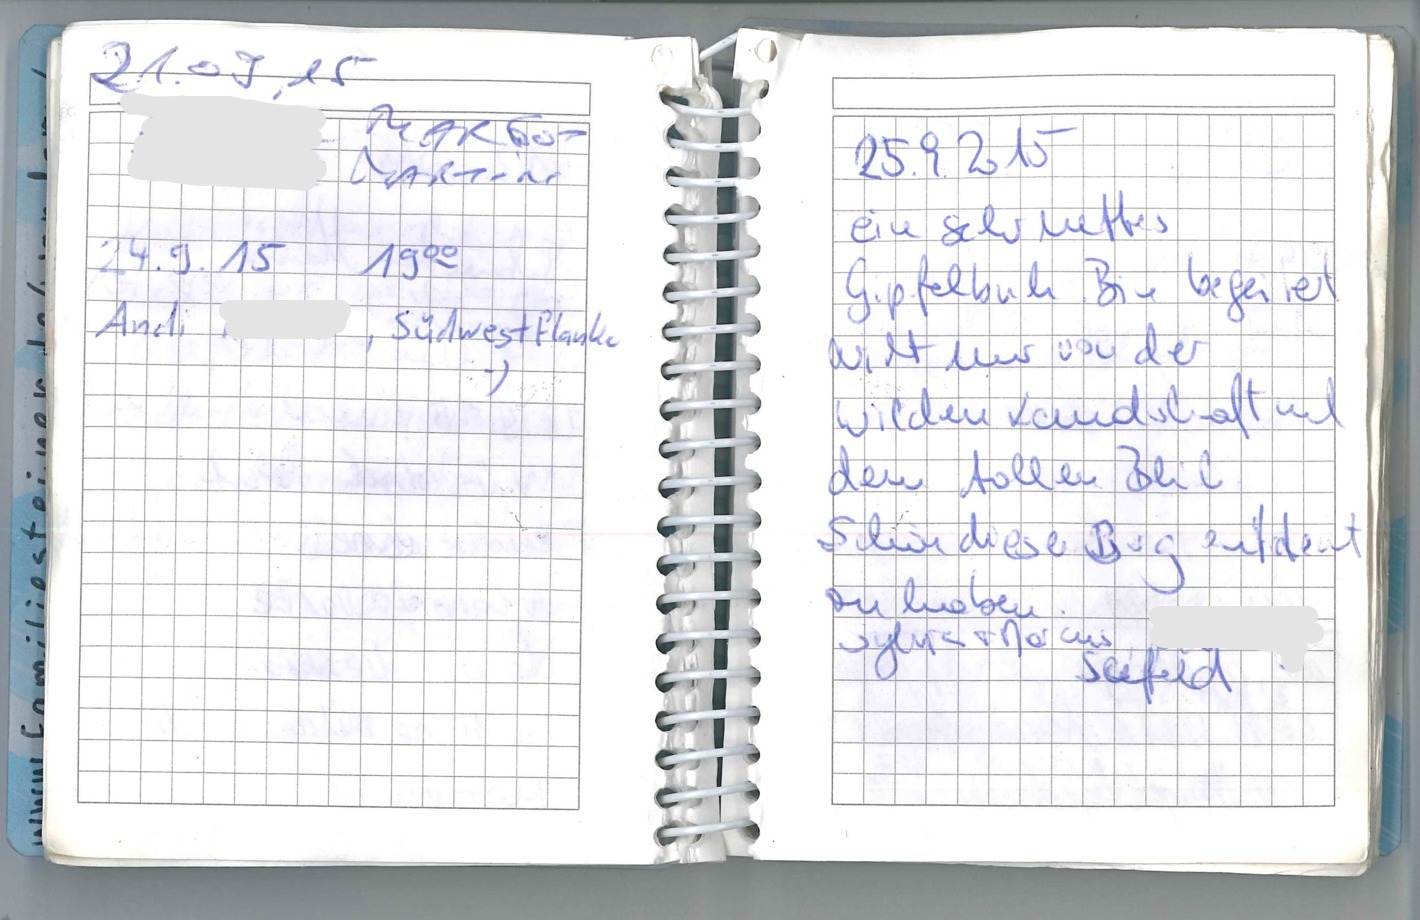 21.09.15
MARGO-
MARTIN
24.9.15 19⁰⁰
Andi , Südwestflanke
:-)
25.9.2015
ein sehr nettes
Gipfelbuch. Bin begeistert
nicht nur von der
wilden Landschaft und
dem tollen Blick
Schön diesen Berg entdeckt
zu haben.
Sylvia + Marcus
Seefeld